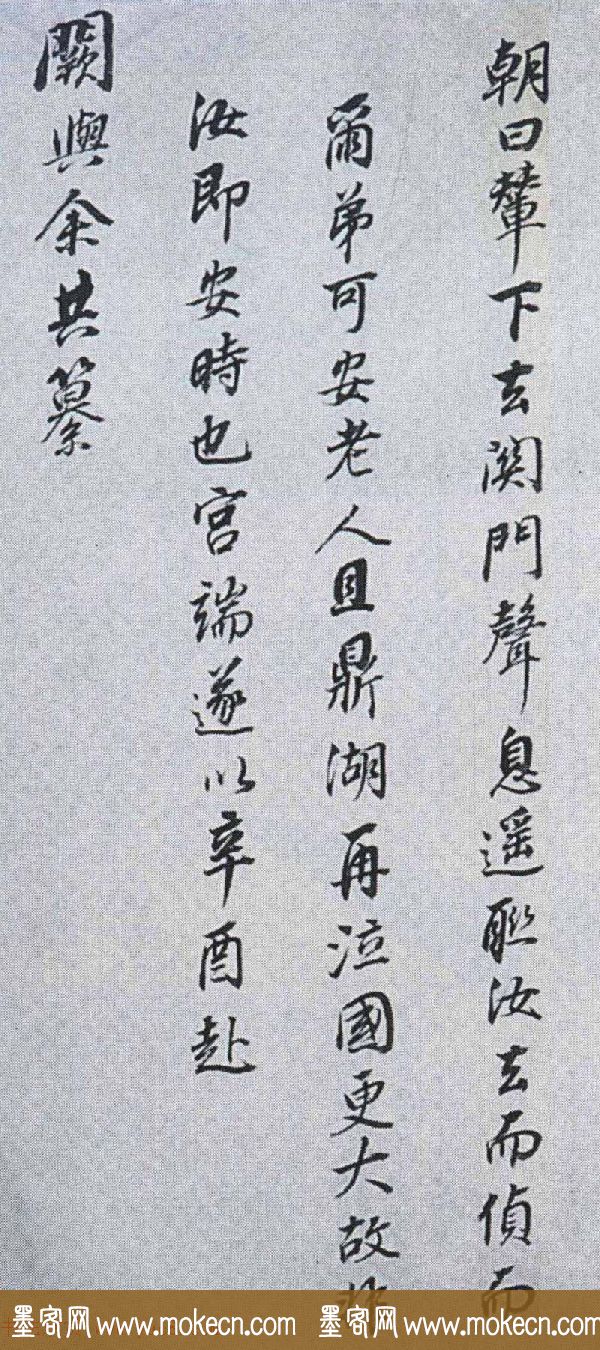 朝日輦下去闗門聲息遥聮汝去而偵而
爾弟可安老人且鼎湖再泣國更大故非
汝即安時也宮端遂以辛酉赴
闕與余共纂
墨客网 www.mokecn.com 墨客网 www.mokecn.com